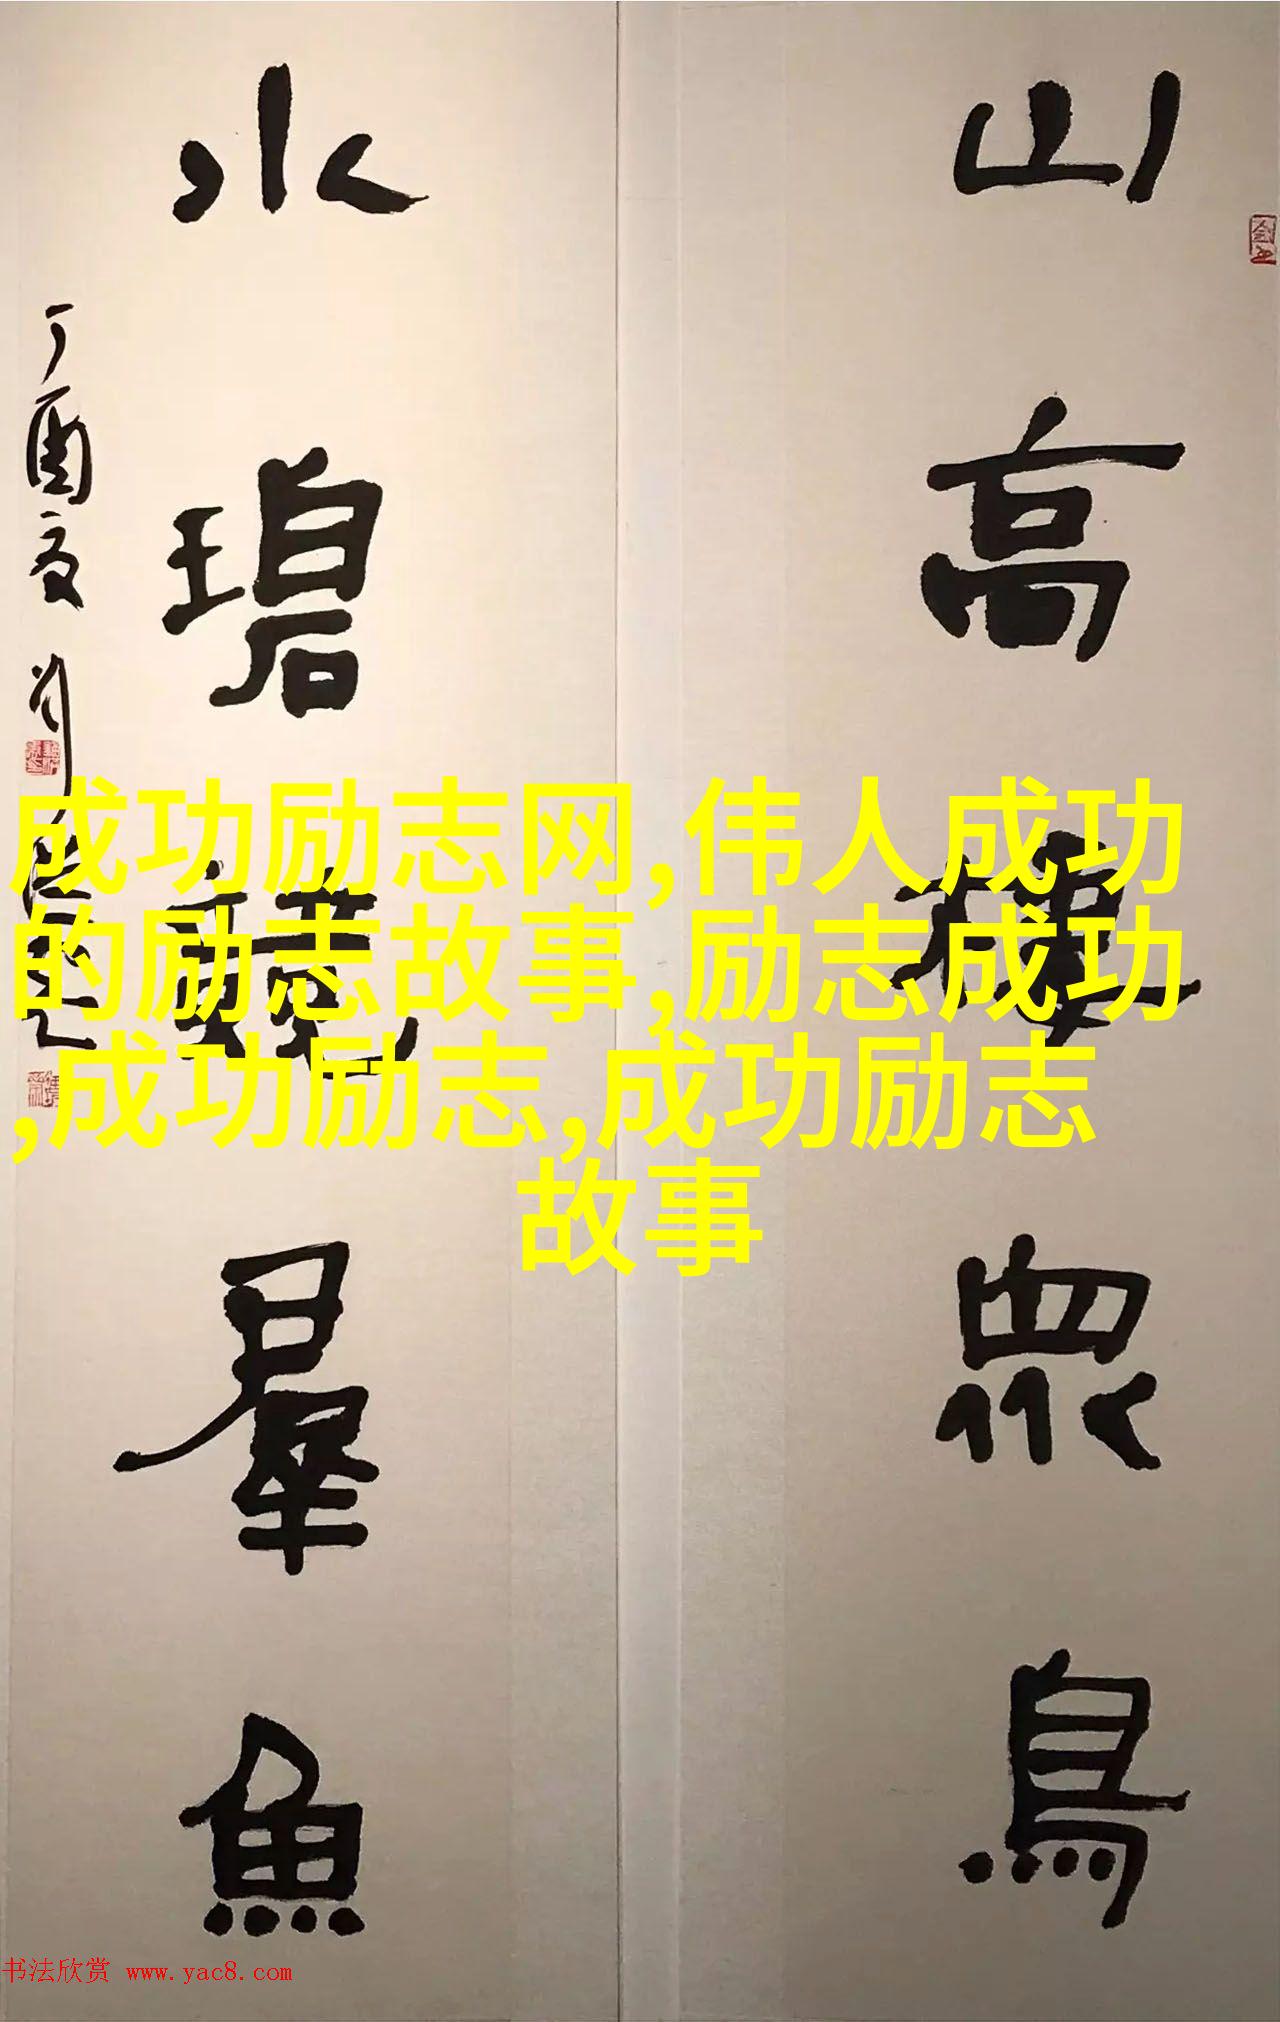 山高樓眾鳥
水碧競羣魚
丁酉夏
成功励志网,伟人成功
的励志故事,励志成功
,成功励志,成功励志
故事
书法欣赏 www.yac8.com